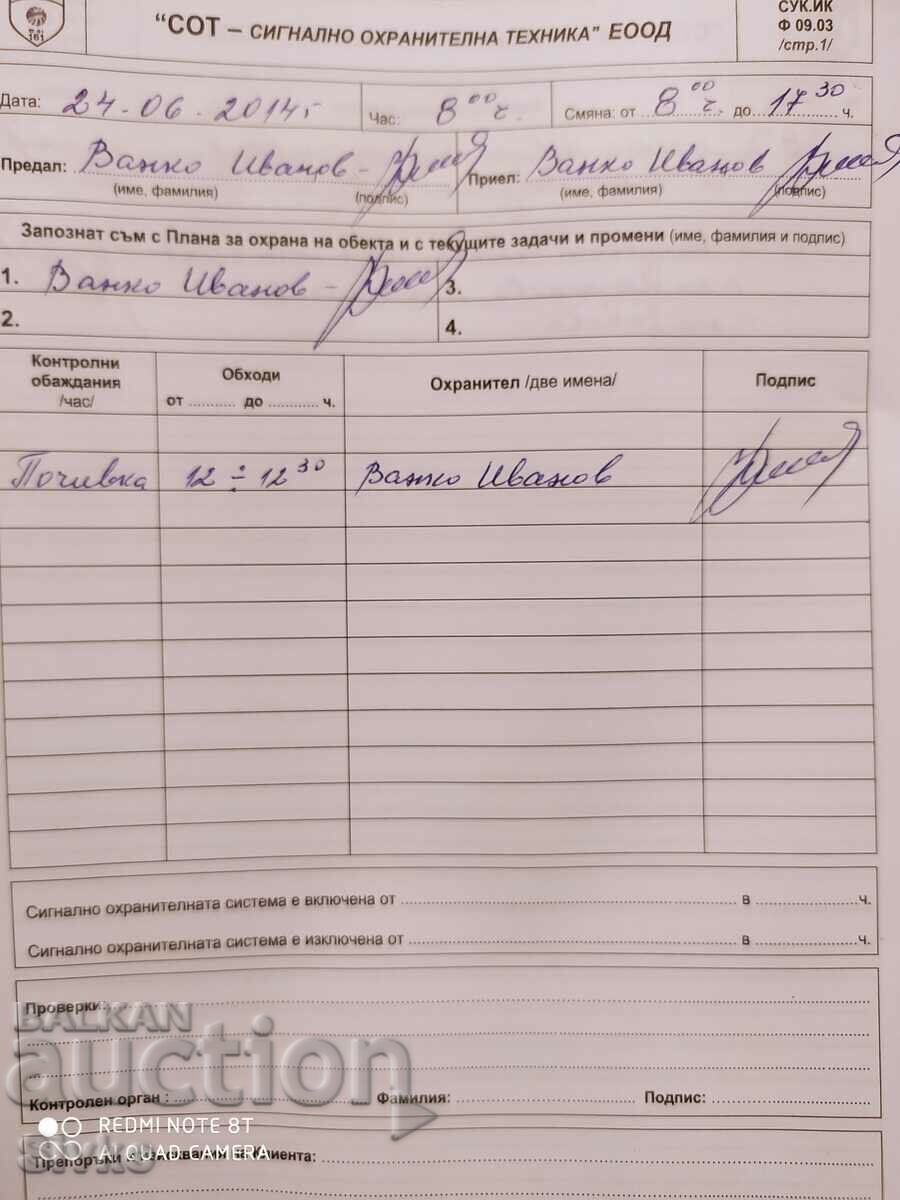 "СОТ – СИГНАЛНО ОХРАНИТЕЛНА ТЕХНИКА" ЕООД
СУК.ИК
Ф 09.03
/стр.1/
161
Дата: 24.06.2014г Час: 8 00 ч. Смяна: от 8 00 ч. до 17 30 ч.
Предал: Ванко Иванов - Приел: Ванко Иванов
(име, фамилия) (подпис) (име, фамилия) (подпис)
Запознат съм с Плана за охрана на обекта и с текущите задачи и промени (име, фамилия и подпис)
1. Ванко Иванов - 3.
2. 4.
Контролни обаждания /час/ Обходи от ........... до ............ ч. Охранител /две имена/ Подпис
Почивка 12 ÷ 12 30 Ванко Иванов
Сигнално охранителната система е включена от ........ в ........ ч.
Сигнално охранителната система е изключена от ........ в ........ ч.
Проверки:
Контролен орган : Фамилия: Подпис:
Препоръки клиента:
BALKAN
auction
REDMI NOTE 8T
AI QUAD CAMERA